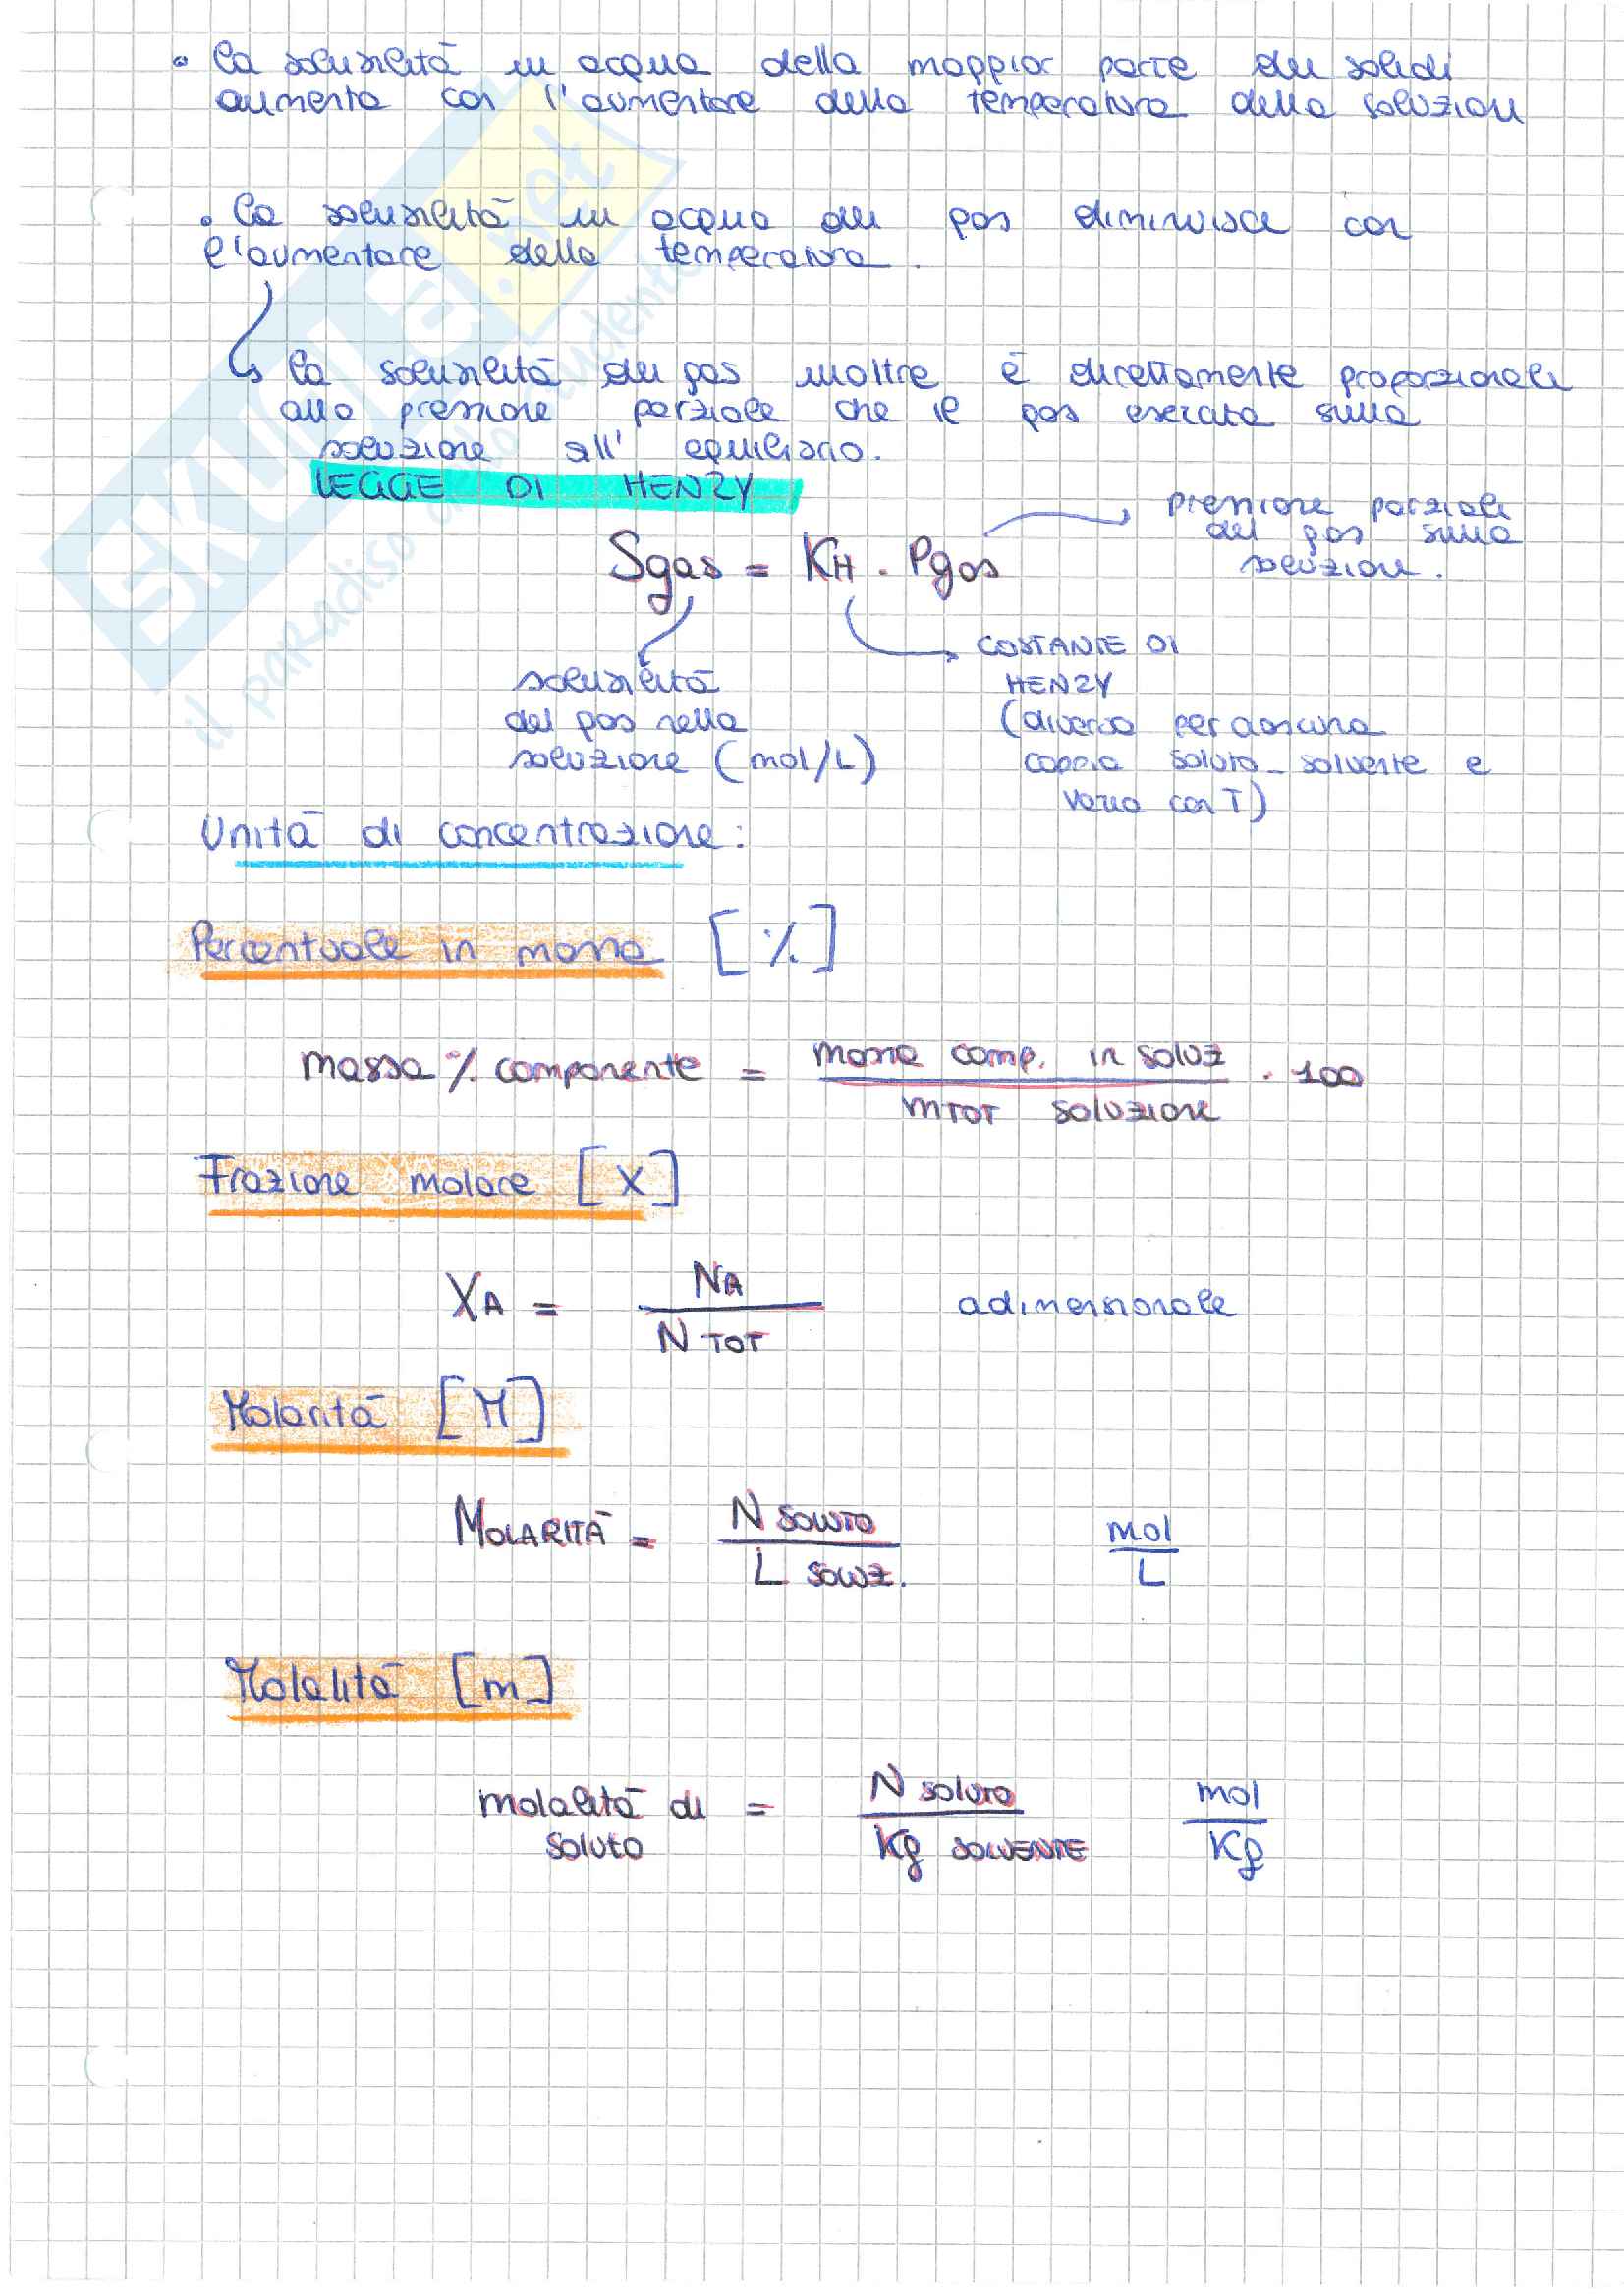 • La solubilità in acqua della maggior parte dei solidi
aumenta con l'aumentare della temperatura della soluzione
• La solubilità in acqua dei gas diminuisce con
l'aumentare della temperatura.
La solubilità dei gas inoltre è direttamente proporzionale
alla pressione parziale che il gas esercita sulla
soluzione all' equilibrio.
LEGGE DI HENRY
Sgas = KH · Pgas
pressione parziale
del gas sulla
soluzione.
solubilità
del gas nella
soluzione (mol/L)
COSTANTE DI
HENRY
(diversa per ciascuna
coppia soluto-solvente e
varia con T)
Unità di concentrazione:
Percentuale in massa [%]
massa % componente = massa comp. in soluz / mTOT soluzione · 100
Frazione molare [X]
XA = NA / N TOT adimensionale
Molarità [M]
MOLARITÀ = N SOLUTO / L SOLUZ. mol / L
Molalità [m]
molalità di soluto = N soluto / Kg SOLVENTE mol / Kg
SKUOLA.net
il paradiso dello studente